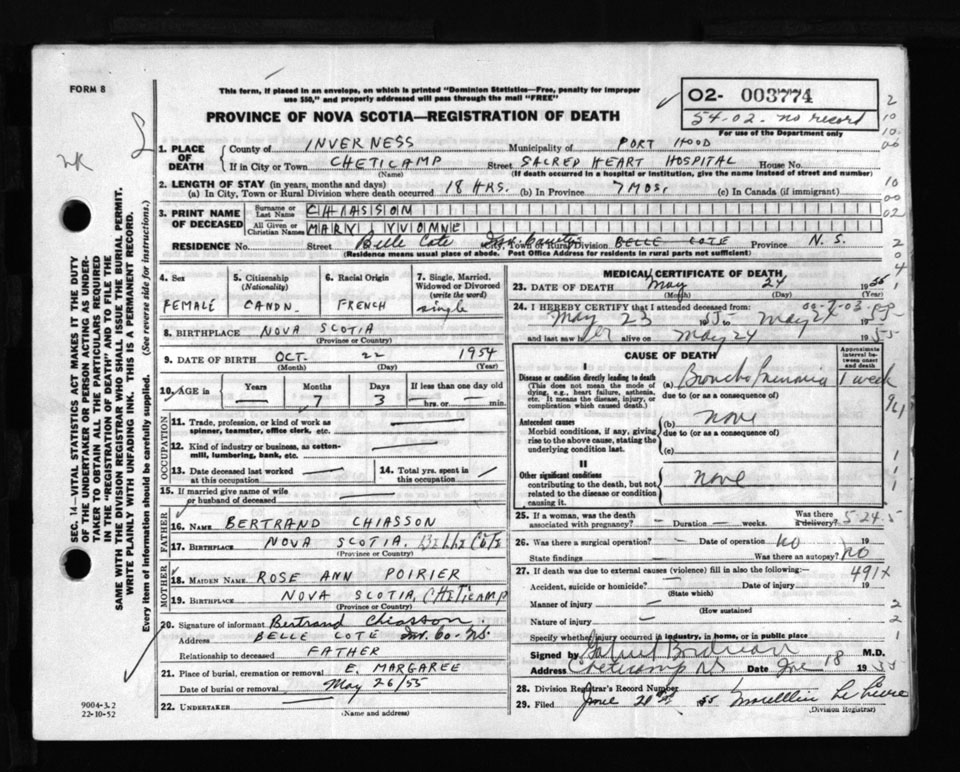 FORM 8
This form, if placed in an envelope, on which is printed "Dominion Statistics—Free, penalty for improper
use $50," and properly addressed will pass through the mail "FREE"
02- 003774
54-02. no record
For use of the Department only
PROVINCE OF NOVA SCOTIA—REGISTRATION OF DEATH
1. PLACE OF DEATH
County of INVERNESS Municipality of PORT HOOD
If in City or Town CHETICAMP Street SACRED HEART HOSPITAL House No.
(Name) (If death occurred in a hospital or institution, give the name instead of street and number)
2. LENGTH OF STAY (in years, months and days)
(a) In City, Town or Rural Division where death occurred 18 HRS. (b) In Province 7 MOS. (c) In Canada (if immigrant)
3. PRINT NAME OF DECEASED
Surname or Last Name CHIASSON
All Given or Christian Names MARY YVONNE
RESIDENCE No. Street Belle Cote City, Town or Rural Division BELLE COTE Province N. S.
(Residence means usual place of abode. Post Office Address for residents in rural parts not sufficient)
4. Sex FEMALE
5. Citizenship (Nationality) CANDN.
6. Racial Origin FRENCH
7. Single, Married, Widowed or Divorced (write the word) single
8. BIRTHPLACE NOVA SCOTIA
(Province or Country)
9. DATE OF BIRTH OCT. 22 1954
(Month) (Day) (Year)
10. AGE in Years — Months 7 Days 3 If less than one day old — hrs. or — min.
OCCUPATION
11. Trade, profession, or kind of work as spinner, teamster, office clerk, etc. —
12. Kind of industry or business, as cotton-mill, lumbering, bank, etc. —
13. Date deceased last worked at this occupation —
14. Total yrs. spent in this occupation
15. If married give name of wife or husband of deceased —
FATHER
16. NAME BERTRAND CHIASSON
17. BIRTHPLACE NOVA SCOTIA. BELLE COTE
(Province or Country)
MOTHER
18. MAIDEN NAME ROSE ANN POIRIER
19. BIRTHPLACE NOVA SCOTIA, CHETICAMP
(Province or Country)
20. Signature of informant Bertrand Chiasson.
Address BELLE COTE Inv. Co. NS.
Relationship to deceased FATHER
21. Place of burial, cremation or removal E. MARGAREE
Date of burial or removal May 26/55
22. UNDERTAKER —
(Name and address)
9004-3.2
22-10-52
MEDICAL CERTIFICATE OF DEATH
23. DATE OF DEATH May 24 1955
(Month) (Day) (Year)
24. I HEREBY CERTIFY that I attended deceased from 00-7-03
May 23 1955 to May 24 1955
and last saw her alive on May 24 1955
CAUSE OF DEATH
Approximate interval between onset and death
I
Disease or condition directly leading to death
(This does not mean the mode of dying, e.g., heart failure, asthenia, etc. It means the disease, injury, or complication which caused death.)
(a) Broncho Pneumonia 1 week
due to (or as a consequence of)
Antecedent causes
Morbid conditions, if any, giving rise to the above cause, stating the underlying condition last.
(b) None
due to (or as a consequence of)
(c)
II
Other significant conditions
contributing to the death, but not related to the disease or condition causing it.
None
25. If a woman, was the death associated with pregnancy? — Duration — weeks. Was there a delivery? 5-24-5
26. Was there a surgical operation? — Date of operation no 19
State findings — Was there an autopsy? No
27. If death was due to external causes (violence) fill in also the following:- 491X
Accident, suicide or homicide? — Date of injury 19
(State which)
Manner of injury —
(How sustained
Nature of injury —
Specify whether injury occurred in industry, in home, or in public place
Signed by Gabriel Boudreau M.D.
Address Cheticamp NS Date June 18 1955
28. Division Registrar's Record Number
29. Filed June 20th 1955
(Division Registrar)
SEC. 14—VITAL STATISTICS ACT MAKES IT THE DUTY
OF THE UNDERTAKER OR PERSON ACTING AS UNDER-
TAKER TO OBTAIN ALL THE PARTICULARS REQUIRED
IN THE "REGISTRATION OF DEATH" AND TO FILE THE
SAME WITH THE DIVISION REGISTRAR WHO SHALL ISSUE THE BURIAL PERMIT.
WRITE PLAINLY WITH UNFADING INK. THIS IS A PERMANENT RECORD.
Every item of information should be carefully supplied. (See reverse side for instructions.)